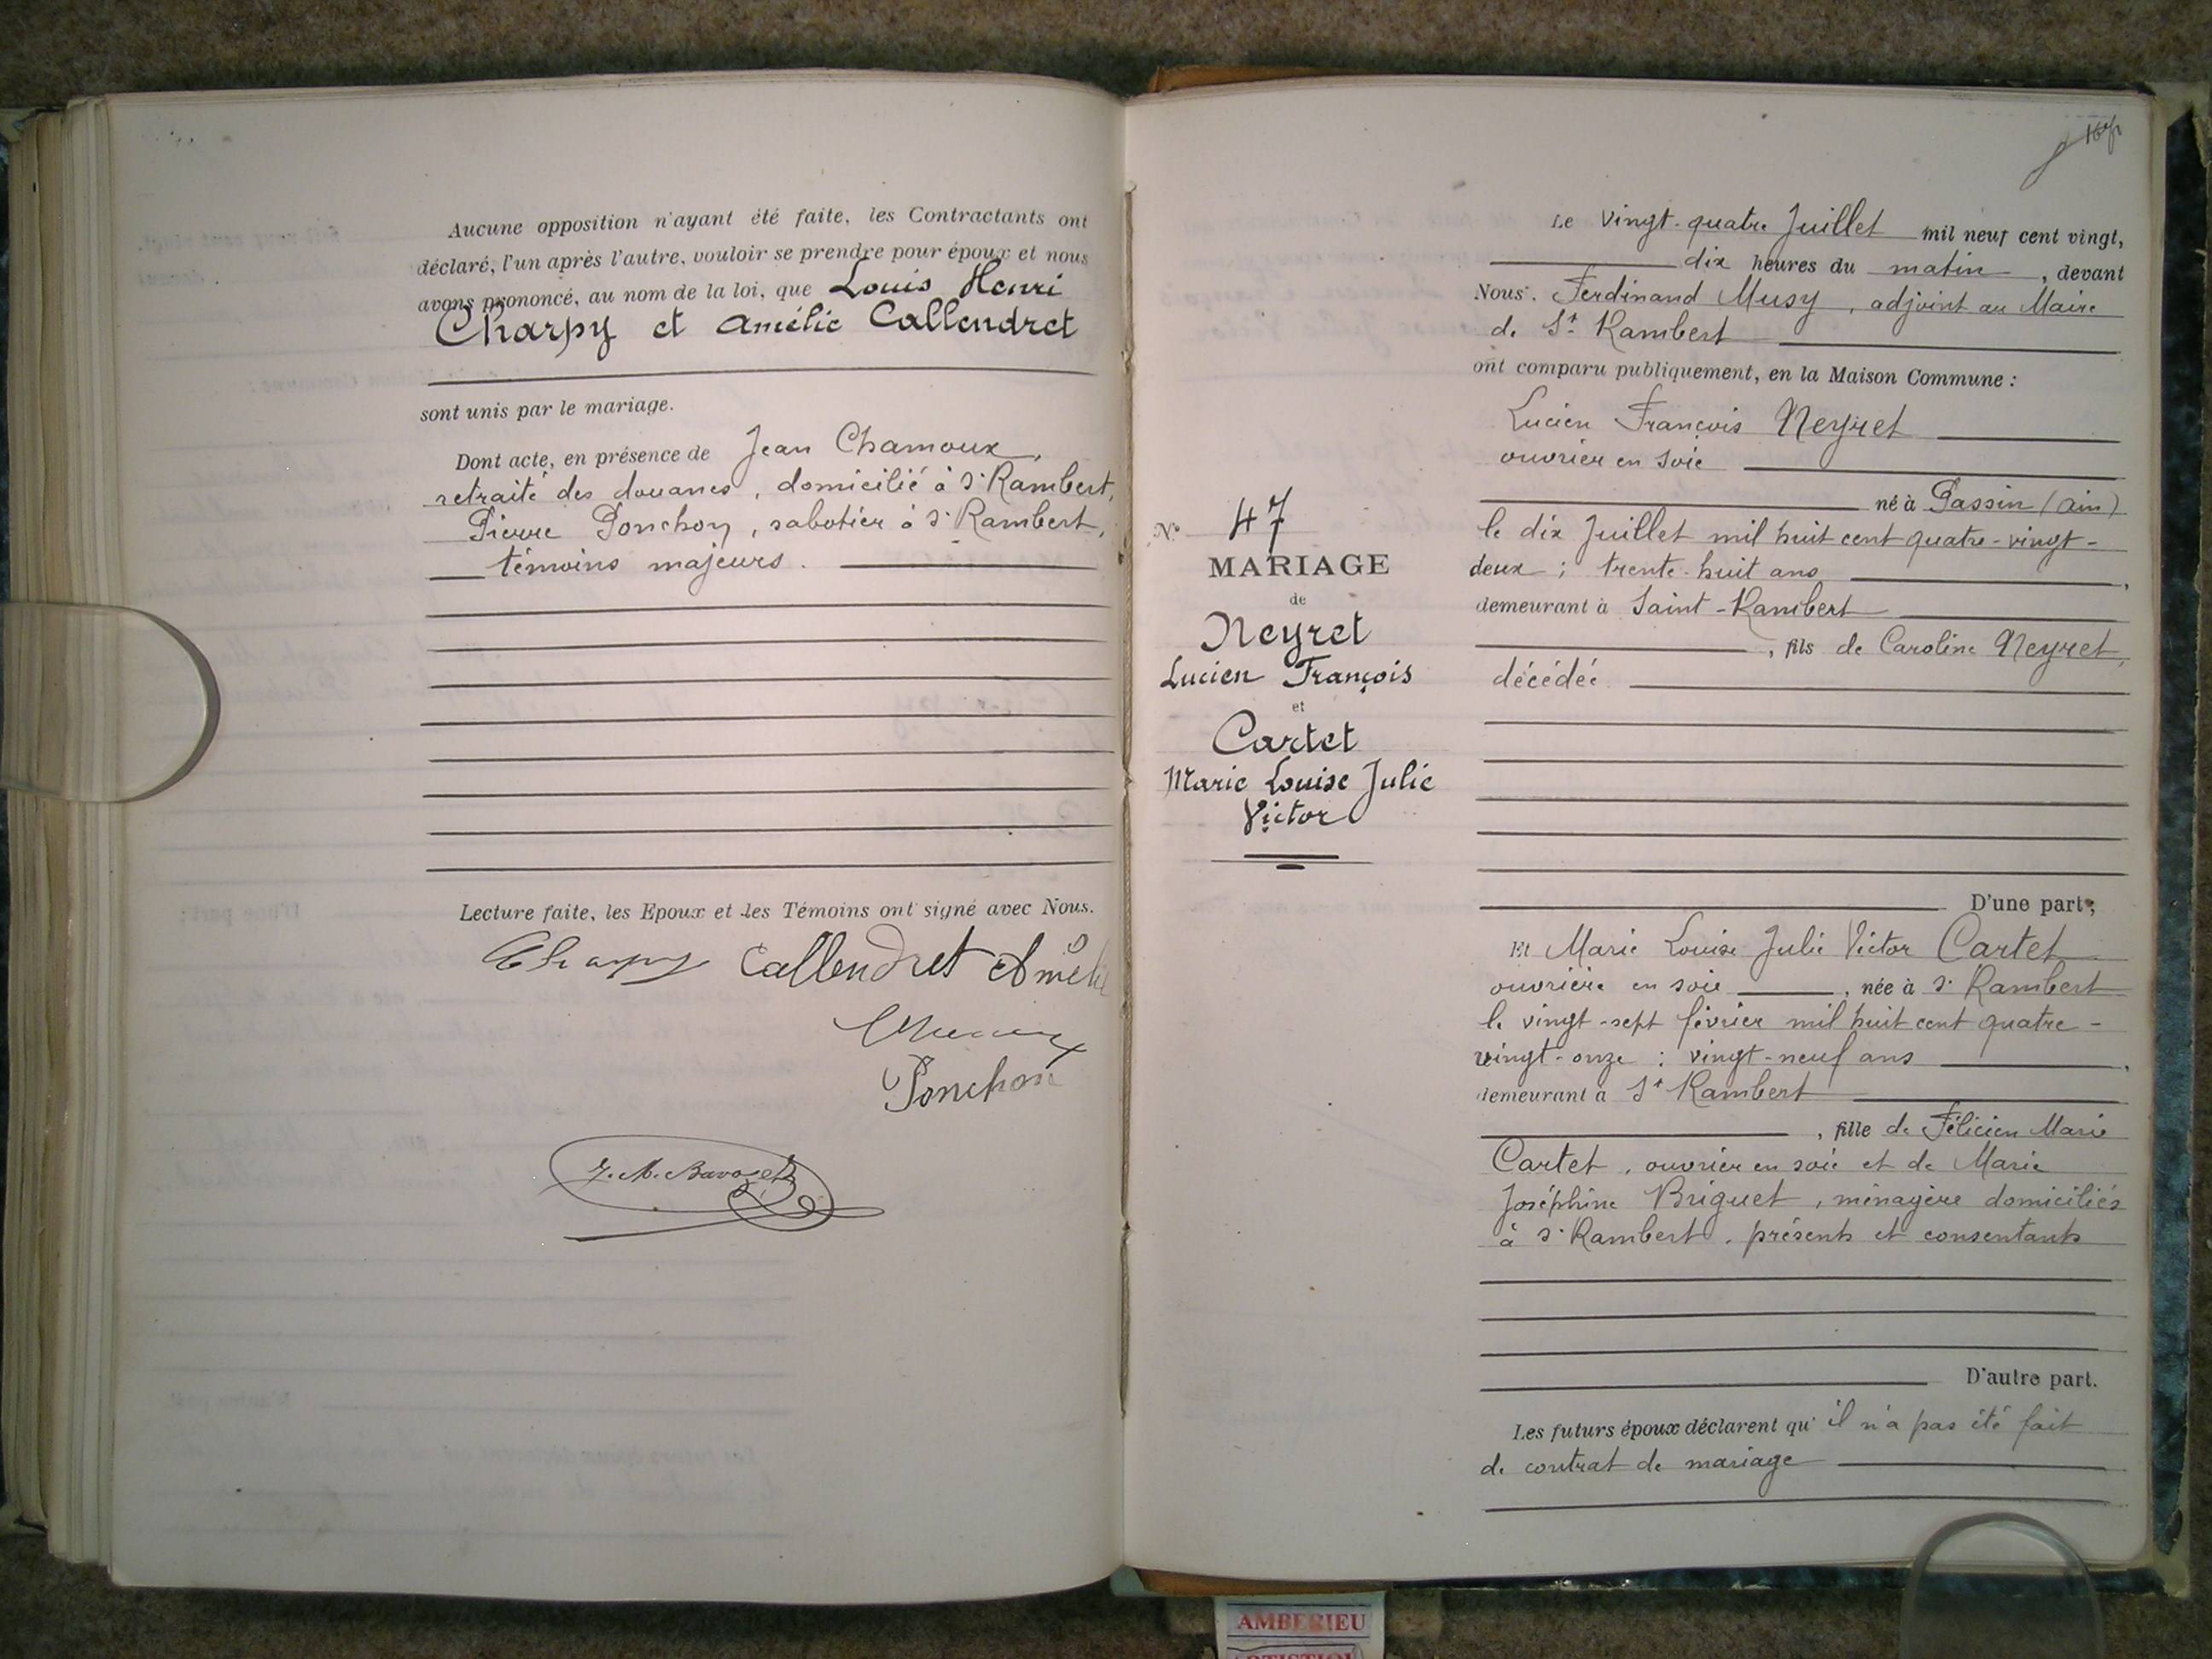 Aucune opposition n'ayant été faite, les Contractants ont
déclaré, l'un après l'autre, vouloir se prendre pour époux et nous
avons prononcé, au nom de la loi, que Louis Henri
Charpy et Amélie Callendret
sont unis par le mariage.
Dont acte, en présence de Jean Chamoux,
retraité des douanes, domicilié à St Rambert,
Pierre Ponchon, sabotier à St Rambert,
témoins majeurs.
Lecture faite, les Epoux et les Témoins ont signé avec Nous.
Charpy Callendret Amélie
Ponchon
Le vingt-quatre Juillet mil neuf cent vingt,
dix heures du matin, devant
Nous. Ferdinand Musy, adjoint au Maire
de St Rambert
ont comparu publiquement, en la Maison Commune :
Lucien François Neyret
ouvrier en soie
né à Passin (Ain)
le dix Juillet mil huit cent quatre-vingt-
deux ; trente-huit ans,
demeurant à Saint-Rambert
, fils de Caroline Neyret,
décédée
No 47
MARIAGE
de
Neyret
Lucien François
et
Cartet
Marie Louise Julie
Victor
D'une part ;
Et Marie Louise Julie Victor Cartet
ouvrière en soie, née à St Rambert
le vingt-sept février mil huit cent quatre-
vingt-onze : vingt-neuf ans,
demeurant à St Rambert
, fille de Félicien Marie
Cartet, ouvrier en soie et de Marie
Joséphine Briguet, ménagère domiciliés
à St Rambert, présents et consentants
D'autre part.
Les futurs époux déclarent qu'il n'a pas été fait
de contrat de mariage
AMBERIEU